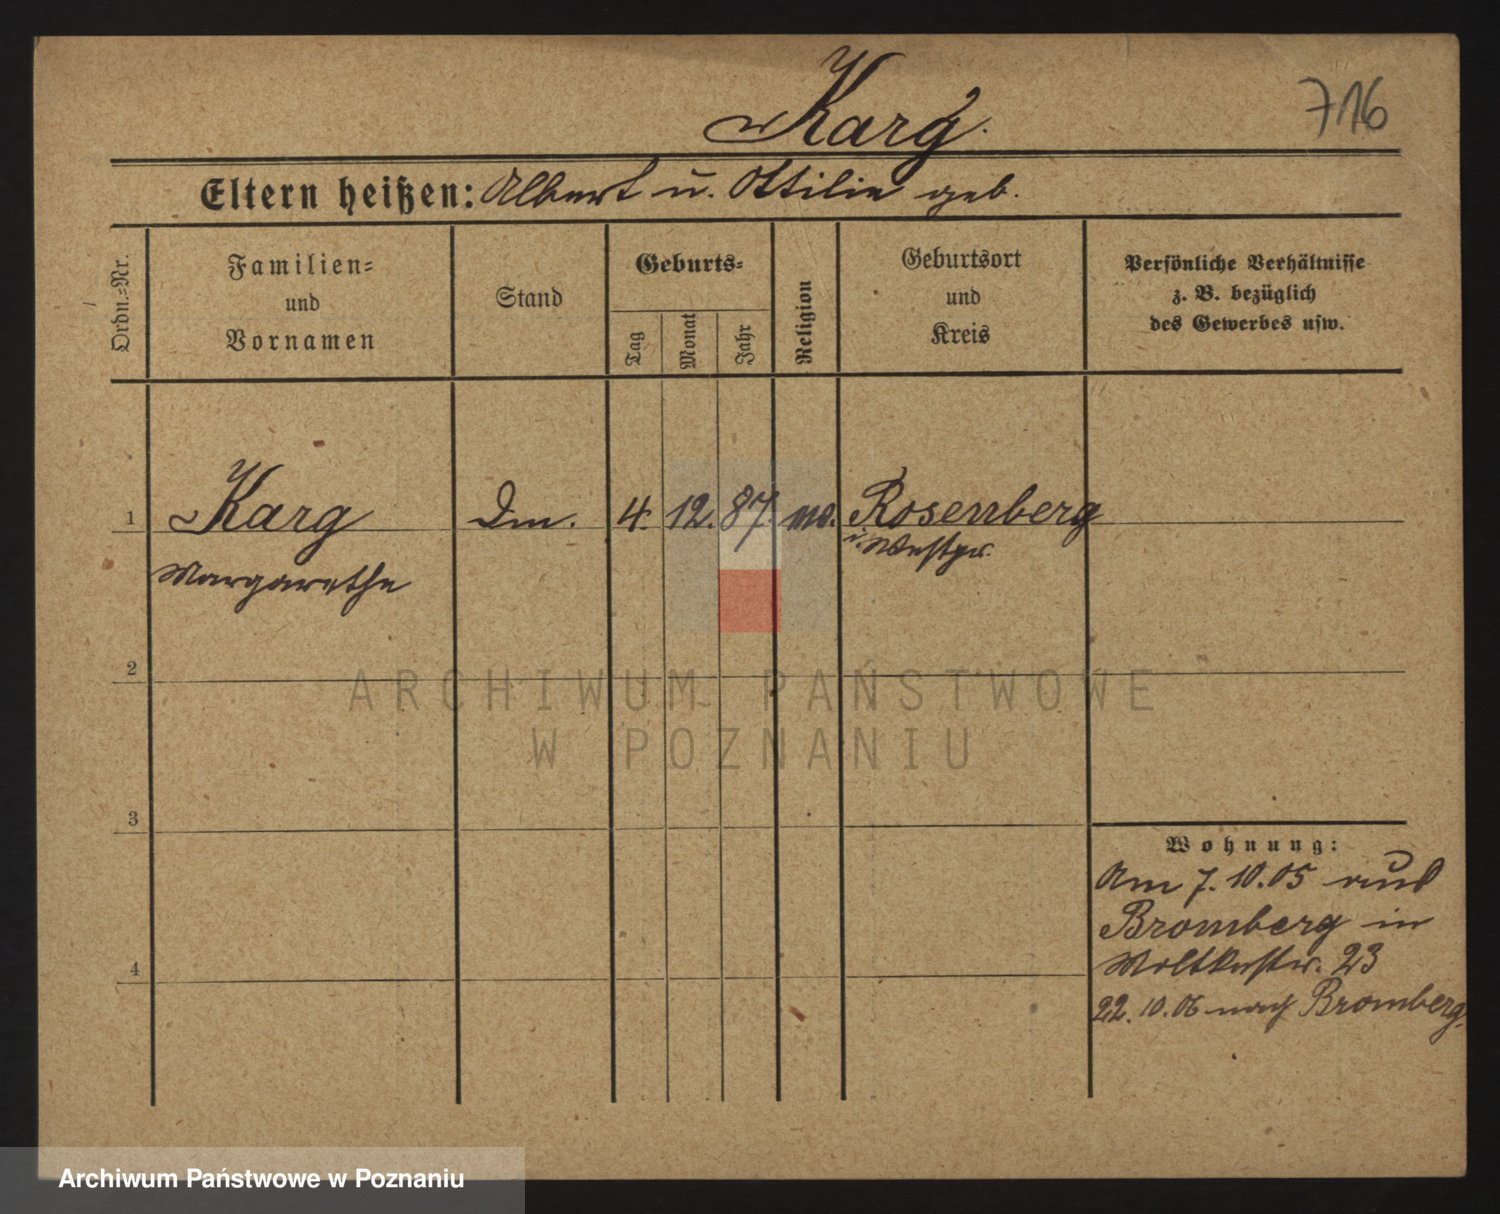 Karg.
716
Eltern heißen: Albert u. Ottilie geb.
Ordn.-Nr.
Familien-
und
Vornamen
Stand
Geburts-
Tag
Monat
Jahr
Religion
Geburtsort
und
Kreis
Persönliche Verhältnisse
z. B. bezüglich
des Gewerbes usw.
1
Karg
4. 12. 87.
Rosenberg
i. Westpr.
Margarethe
2
ARCHIWUM PAŃSTWOWE
W POZNANIU
3
Wohnung:
Am 7.10.05 aus
Bromberg in
Moltkestr. 23
4
22.10.06 nach Bromberg.
Archiwum Państwowe w Poznaniu